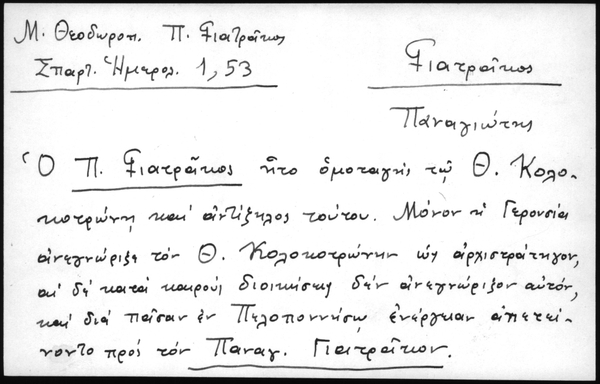 Μ. Θεοδωροπ. Π. Γιατράκος
Σπαρτ. Ἡμερολ. 1, 53
Γιατράκος
Παναγιώτης
Ὁ Π. Γιατράκος ἦτο ὁμοταγὴς τῷ Θ. Κολο-
κοτρώνη καὶ ἀντίζηλος τούτου. Μόνον ἡ Γερουσία
ἀνεγνώριζε τὸν Θ. Κολοκοτρώνην ὡς ἀρχιστράτηγον,
αἱ δὲ κατὰ καιροὺς διοικήσεις δὲν ἀνεγνώριζον αὐτόν,
καὶ διὰ πᾶσαν ἐν Πελοποννήσῳ ἐνέργειαν ἀπετεί-
νοντο πρὸς τὸν Παναγ. Γιατράκον.